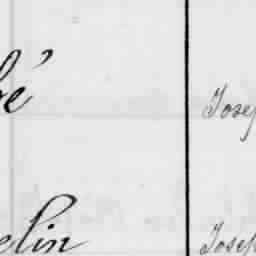 bé Josep
elin Josep